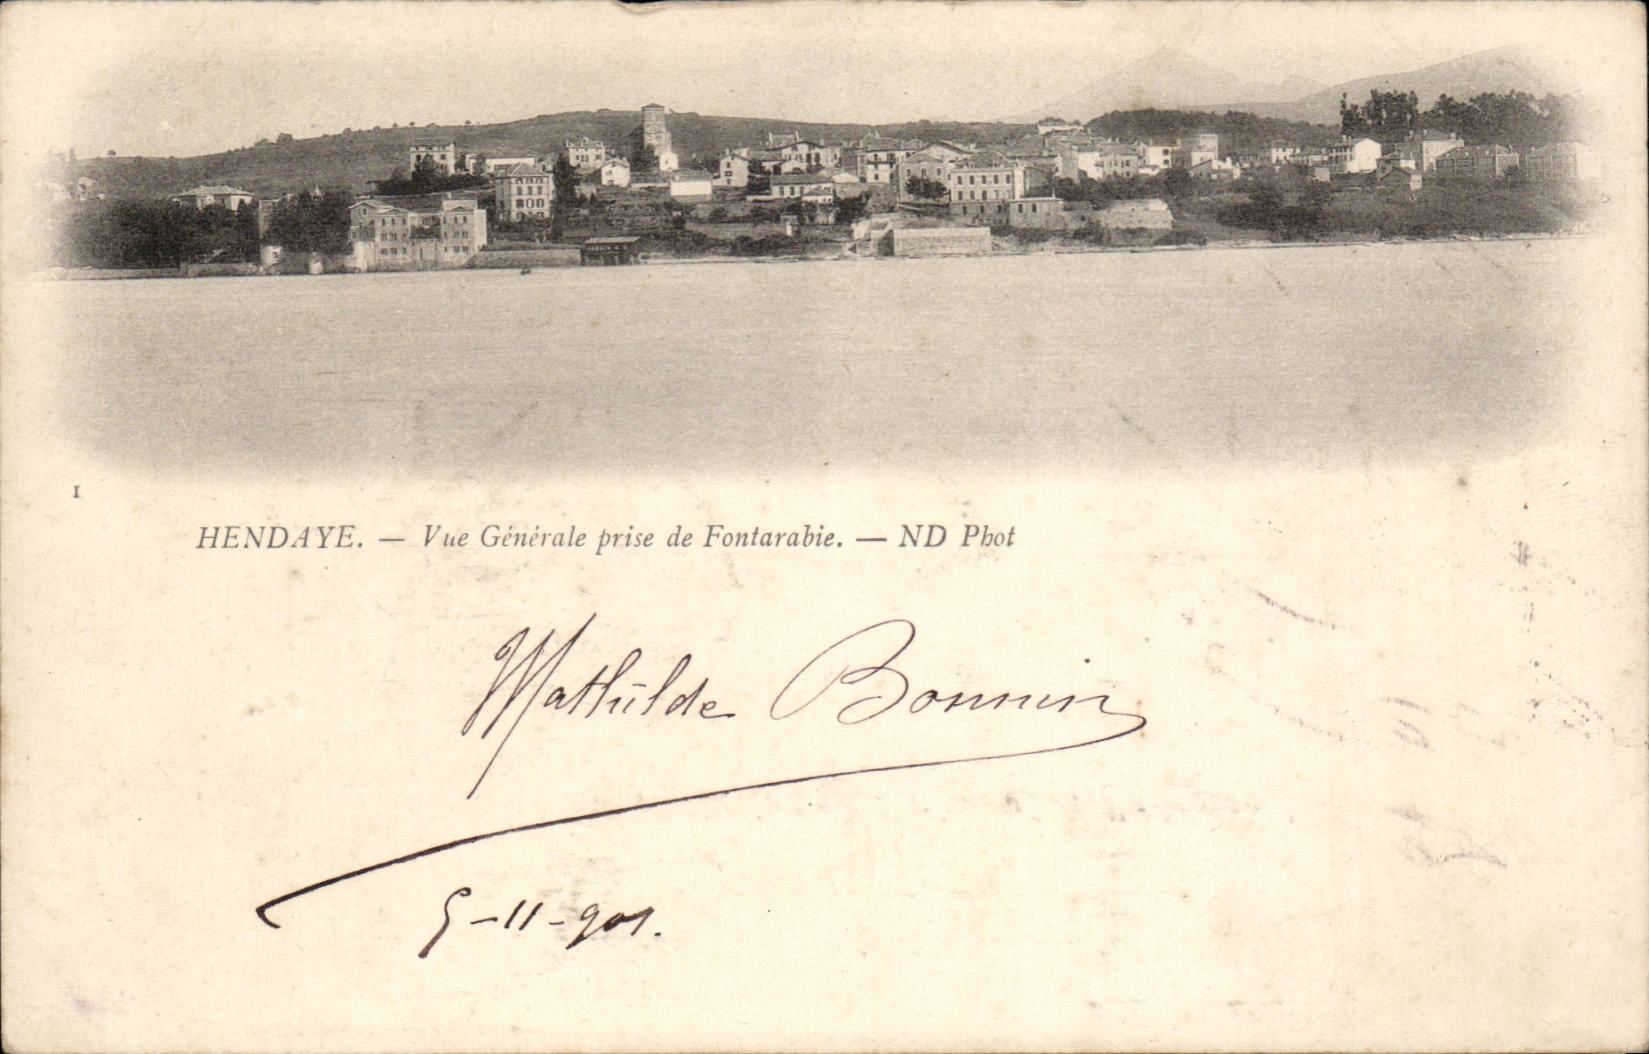 1
HENDAYE. — Vue Générale prise de Fontarabie. — ND Phot
Mathilde Bonnin
5-11-901.